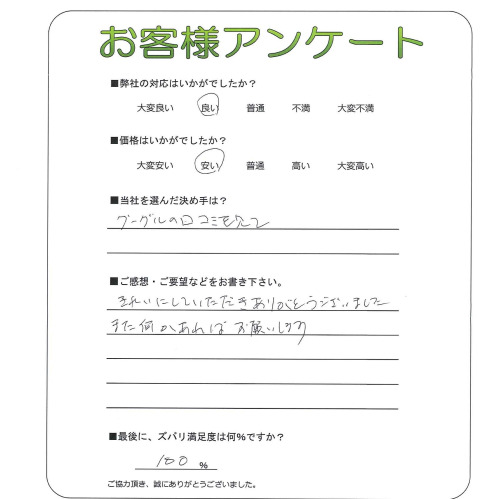 お客様アンケート
■弊社の対応はいかがでしたか？
大変良い 良い 普通 不満 大変不満
■価格はいかがでしたか？
大変安い 安い 普通 高い 大変高い
■当社を選んだ決め手は？
グーグルの口コミを見て
■ご感想・ご要望などをお書き下さい。
きれいにしていただきありがとうございました
また何かあればお願いします
■最後に、ズバリ満足度は何%ですか？
100 %
ご協力頂き、誠にありがとうございました。